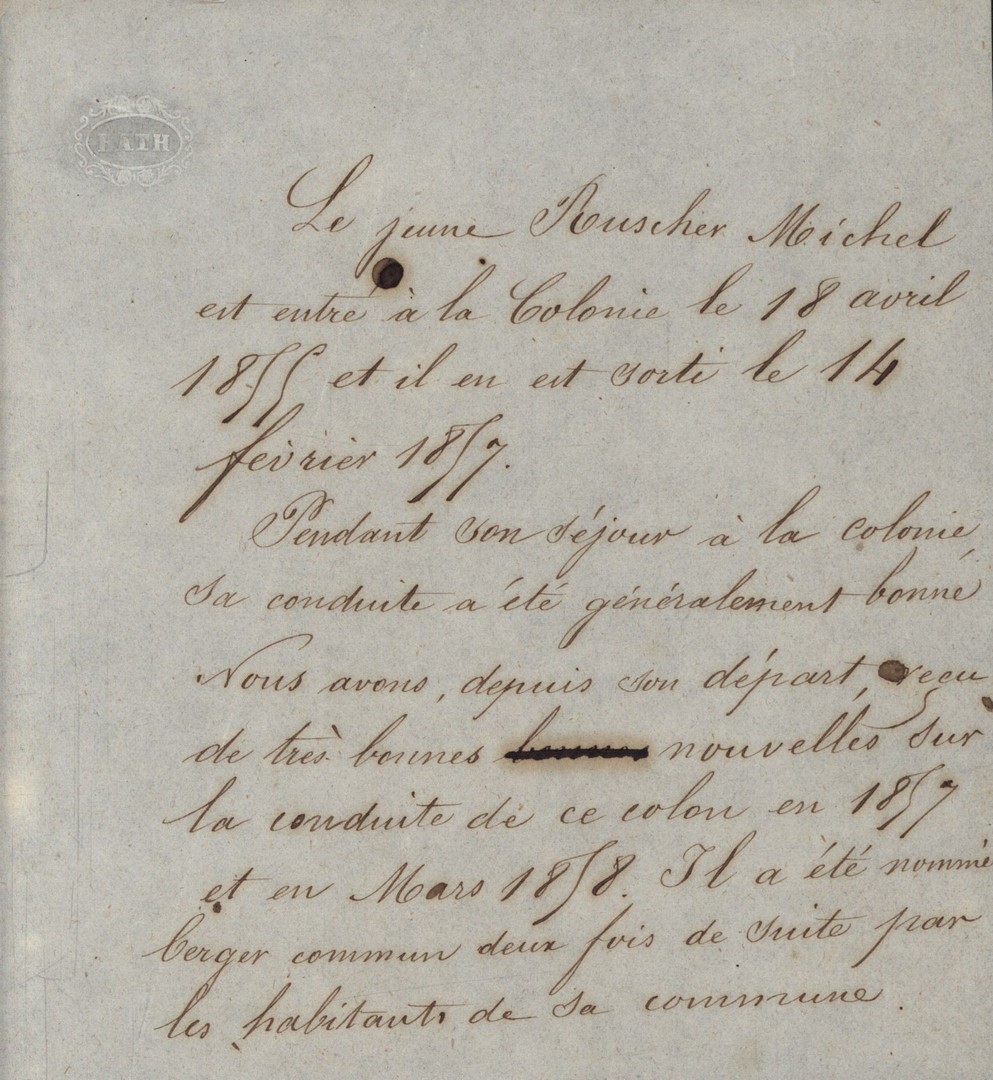 BATH
Le jeune Ruscher Michel
est entré à la Colonie le 18 avril
1855 et il en est sorti le 14
février 1857.
Pendant son séjour à la colonie,
sa conduite a été généralement bonne
Nous avons, depuis son départ, reçu
de très bonnes nouvelles sur
la conduite de ce colon en 1857
et en Mars 1858. Il a été nommé
berger commun deux fois de suite par
les habitants de sa commune.